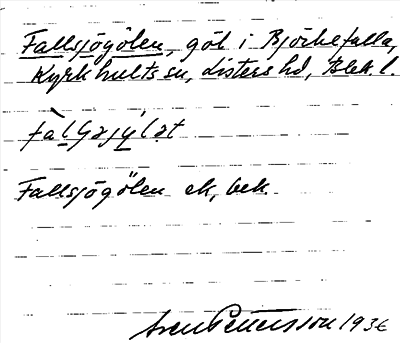 Fallsjögölen, göl i Björkefalla,
Kyrkhults sn, Listers hd, Blek. l.
Fallsjögölen ek, bek.
Sven Pettersson 1936